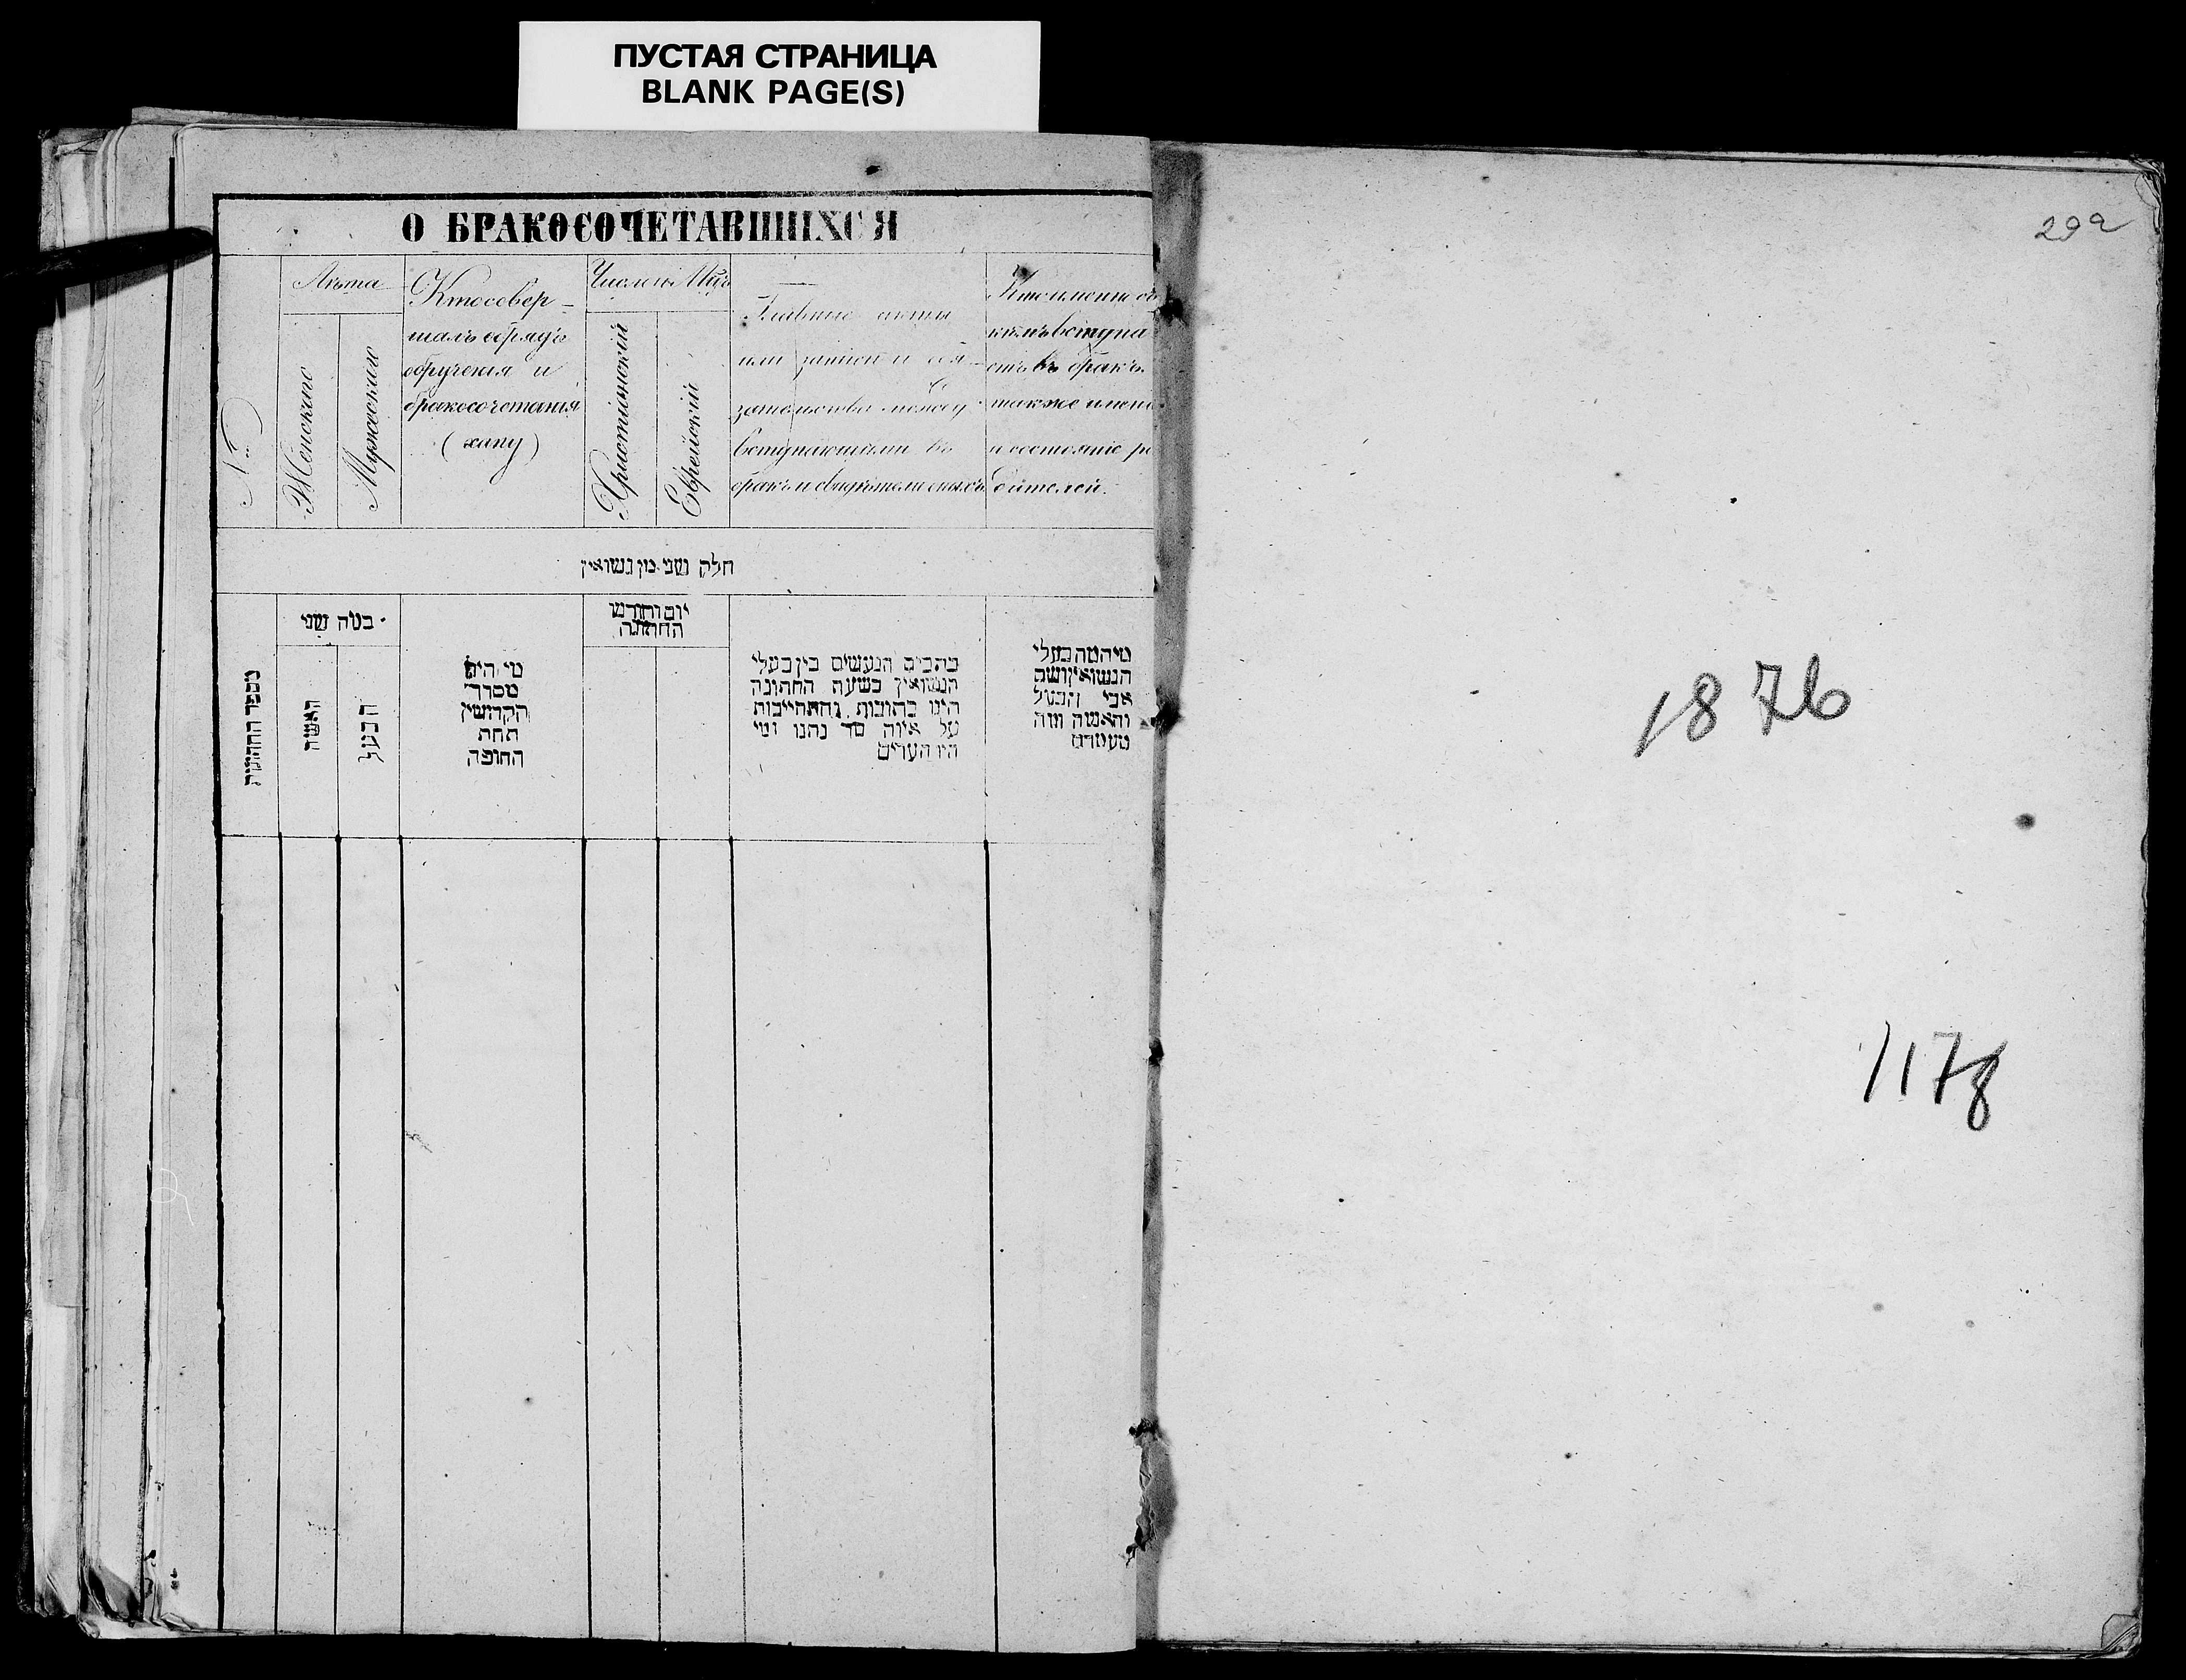 ПУСТАЯ СТРАНИЦА
BLANK PAGE(S)
О БРАКОСОЧЕТАВШИХСЯ
№
Лѣта
Женскаго
Мужескаго
Кто совер-
шалъ обрядъ
обрученія и
бракосочетанія
(хупу)
Число и Мц̃ъ
Христіянскій
Еврейскій
Главные акты
или записи и обя-
зательства между
вступающими въ
бракъ и свидѣтели оныхъ
Кто именно съ
кѣмъ вступа
етъ въ бракъ.
также имена
и состояніе ро
дителей.
חלק שני מן נשואין
מספר החתונות
כמה שני
האשה
הבעל
מי היה
מסדר
הקדושין
תחת
החופה
יום וחודש
החתונה
מהבים הנעשים בין בעלי
הנשואין בשעת החתונה
היינו כתובות והתחייבות
על איזה סך נתנו ומי
היו העדים
מי המה בעלי
הנשואין ושם
אבי הבעל
והאשה ומה
מעמדם
292
1876
1178